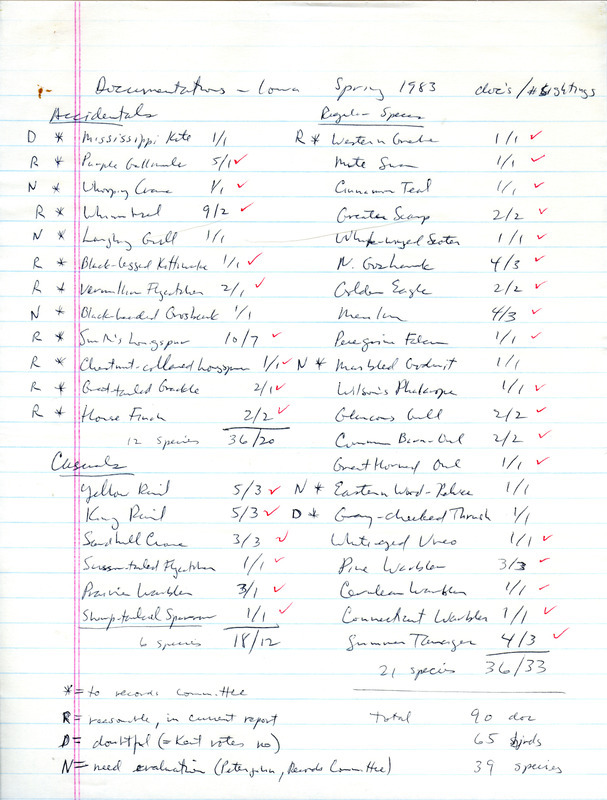 Documentations - Iowa Spring 1983 doc's/#sightings
Accidentals
D * Mississippi Kite 1/1
R * Purple Gallinule 5/1 ✓
N * Whooping Crane 1/1 ✓
R * Whimbrel 9/2 ✓
N * Laughing Gull 1/1
R * Black-legged Kittiwake 1/1 ✓
R * Vermillion Flycatcher 2/1 ✓
N * Black-headed Grosbeak 1/1
R * Smith's Longspur 10/7 ✓
R * Chestnut-collared Longspur 1/1 ✓
R * Great-tailed Grackle 2/1 ✓
R * House Finch 2/2 ✓
12 species 36/20
Casuals
Yellow Rail 5/3 ✓
King Rail 5/3 ✓
Sandhill Crane 3/3 ✓
Scissor-tailed Flycatcher 1/1 ✓
Prairie Warbler 3/1 ✓
Sharp-tailed Sparrow 1/1 ✓
6 species 18/12
Regular Species
R * Western Grebe 1/1 ✓
Mute Swan 1/1 ✓
Cinnamon Teal 1/1 ✓
Greater Scaup 2/2 ✓
White-winged Scoter 1/1 ✓
N. Goshawk 4/3 ✓
Golden Eagle 2/2 ✓
Merlin 4/3 ✓
Peregrine Falcon 1/1 ✓
N * Marbled Godwit 1/1
Wilson's Phalarope 1/1 ✓
Glaucous Gull 2/2 ✓
Common Barn-Owl 2/2 ✓
Great Horned Owl 1/1 ✓
N * Eastern Wood-Pewee 1/1
D * Gray-cheeked Thrush 1/1
White-eyed Vireo 1/1 ✓
Pine Warbler 3/3 ✓
Cerulean Warbler 1/1 ✓
Connecticut Warbler 1/1 ✓
Summer Tanager 4/3 ✓
21 species 36/33
* = to records committee
R = reasonable, in current report
D = doubtful (= Kent votes no)
N = need evaluation (Petersjohn, Records Committee)
total 90 doc
65 birds
39 species